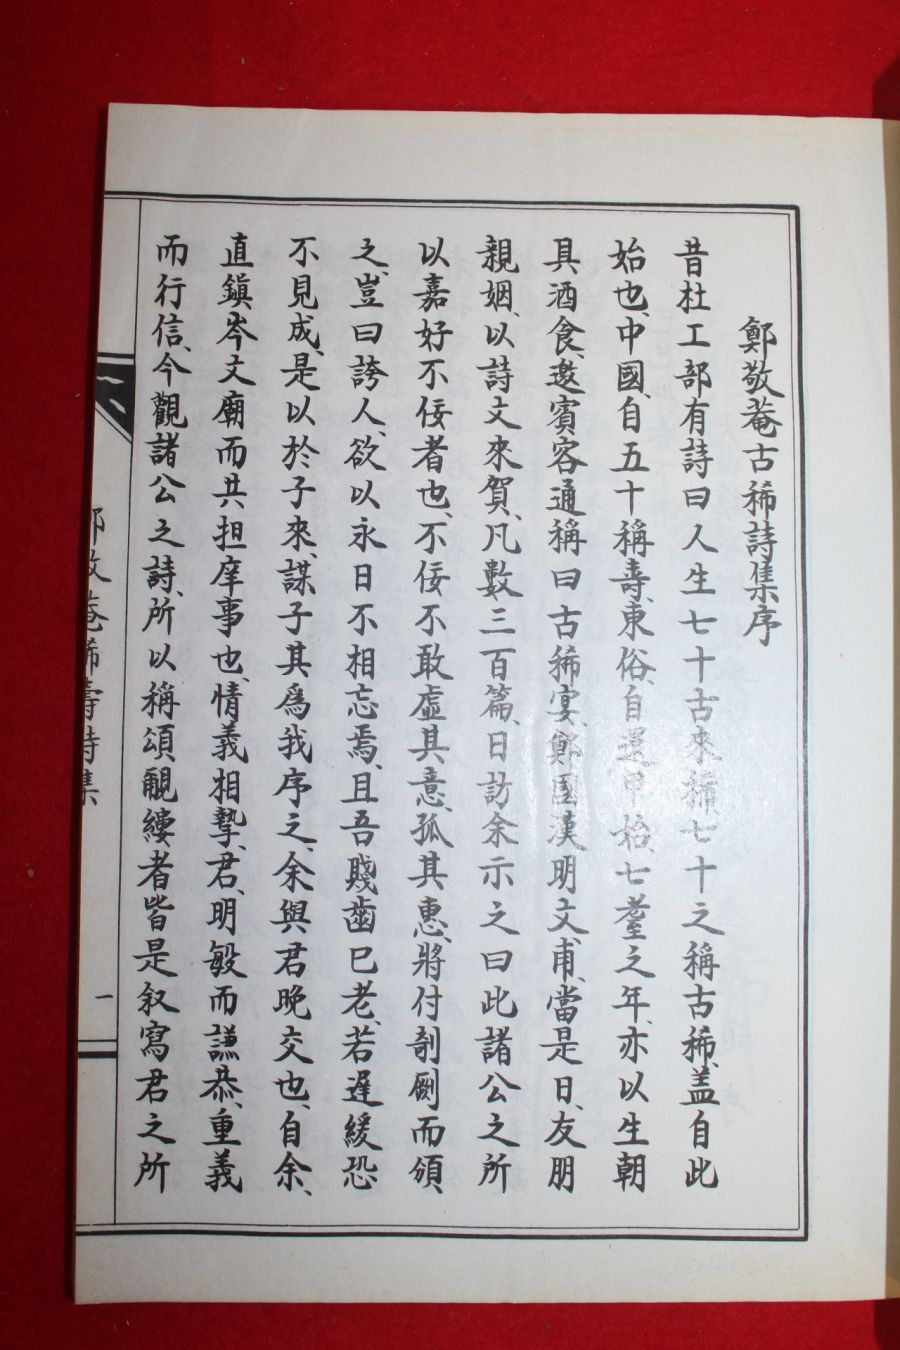 鄭敬菴古稀詩集序
昔杜工部有詩曰人生七十古來稀、七十之稱古稀、盖自此
始也、中國、自五十稱壽、東俗、自還甲始、七耋之年、亦以生朝
具酒食、邀賓客通稱曰古稀宴、鄭國漢明文、甫、當是日、友朋
親姻、以詩文來賀、凡數三百篇、日訪余示之曰此諸公之所
以嘉好不佞者也、不佞不敢虛其意、孤其惠、將付剞劂而頒、
之、豈曰誇人、欲以永日不相忘焉、且吾賤齒已老、若遲緩恐
不見成、是以於子來、謀子其爲我序之、余與君晚交也、自余、
直鎭岑文廟而共担庠事也、情義相摯、君、明敏而謙恭、重義
而行信、今觀諸公之詩、所以稱頌覼縷者皆是叙寫君之所
鄭敬菴稀壽詩集
一